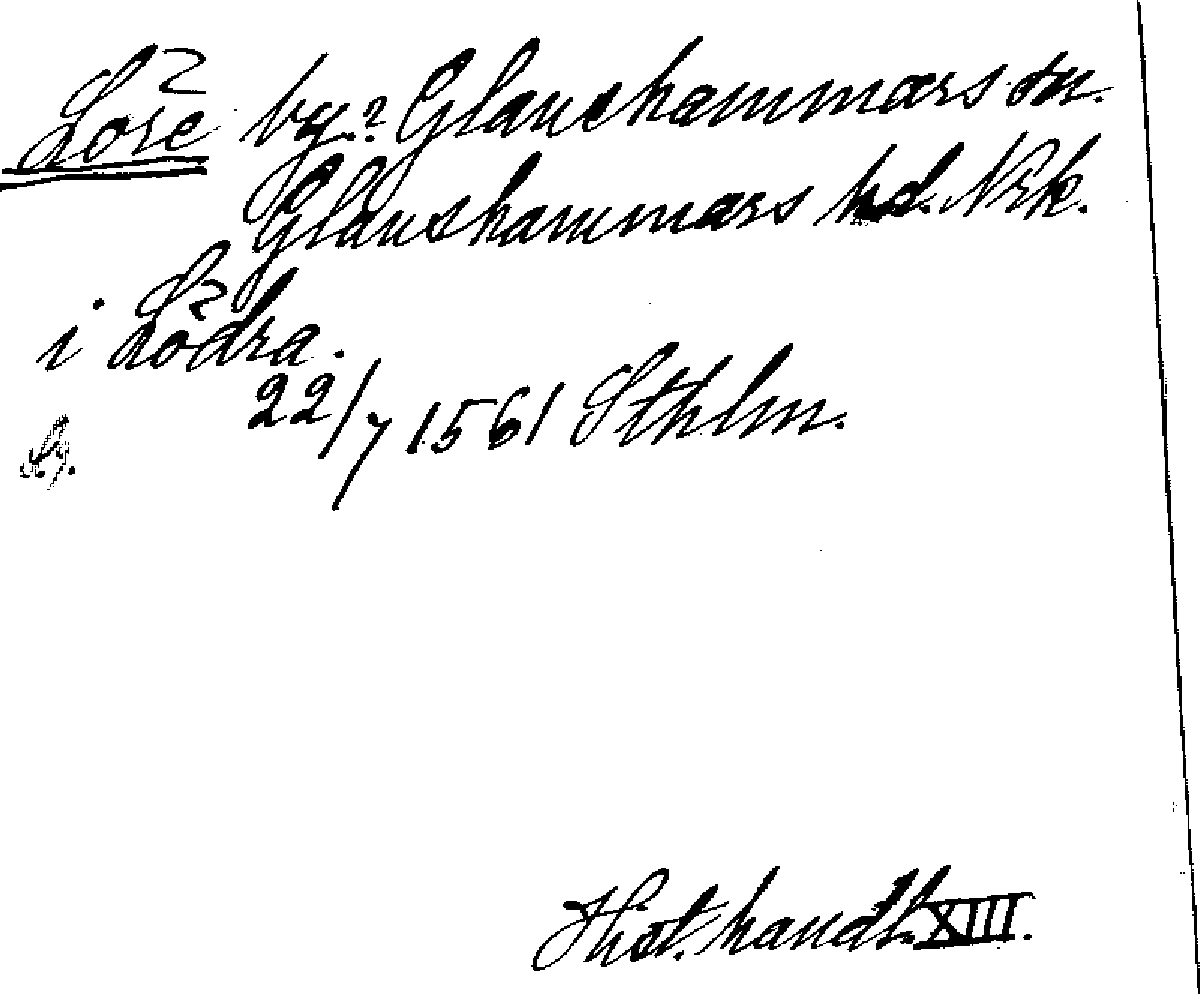 Löre by? Glanshammars sn.
Glanshammars hd. Nrk.
i Lödra.
22/7 1561 Sthlm.
Hist. handl. XIII.